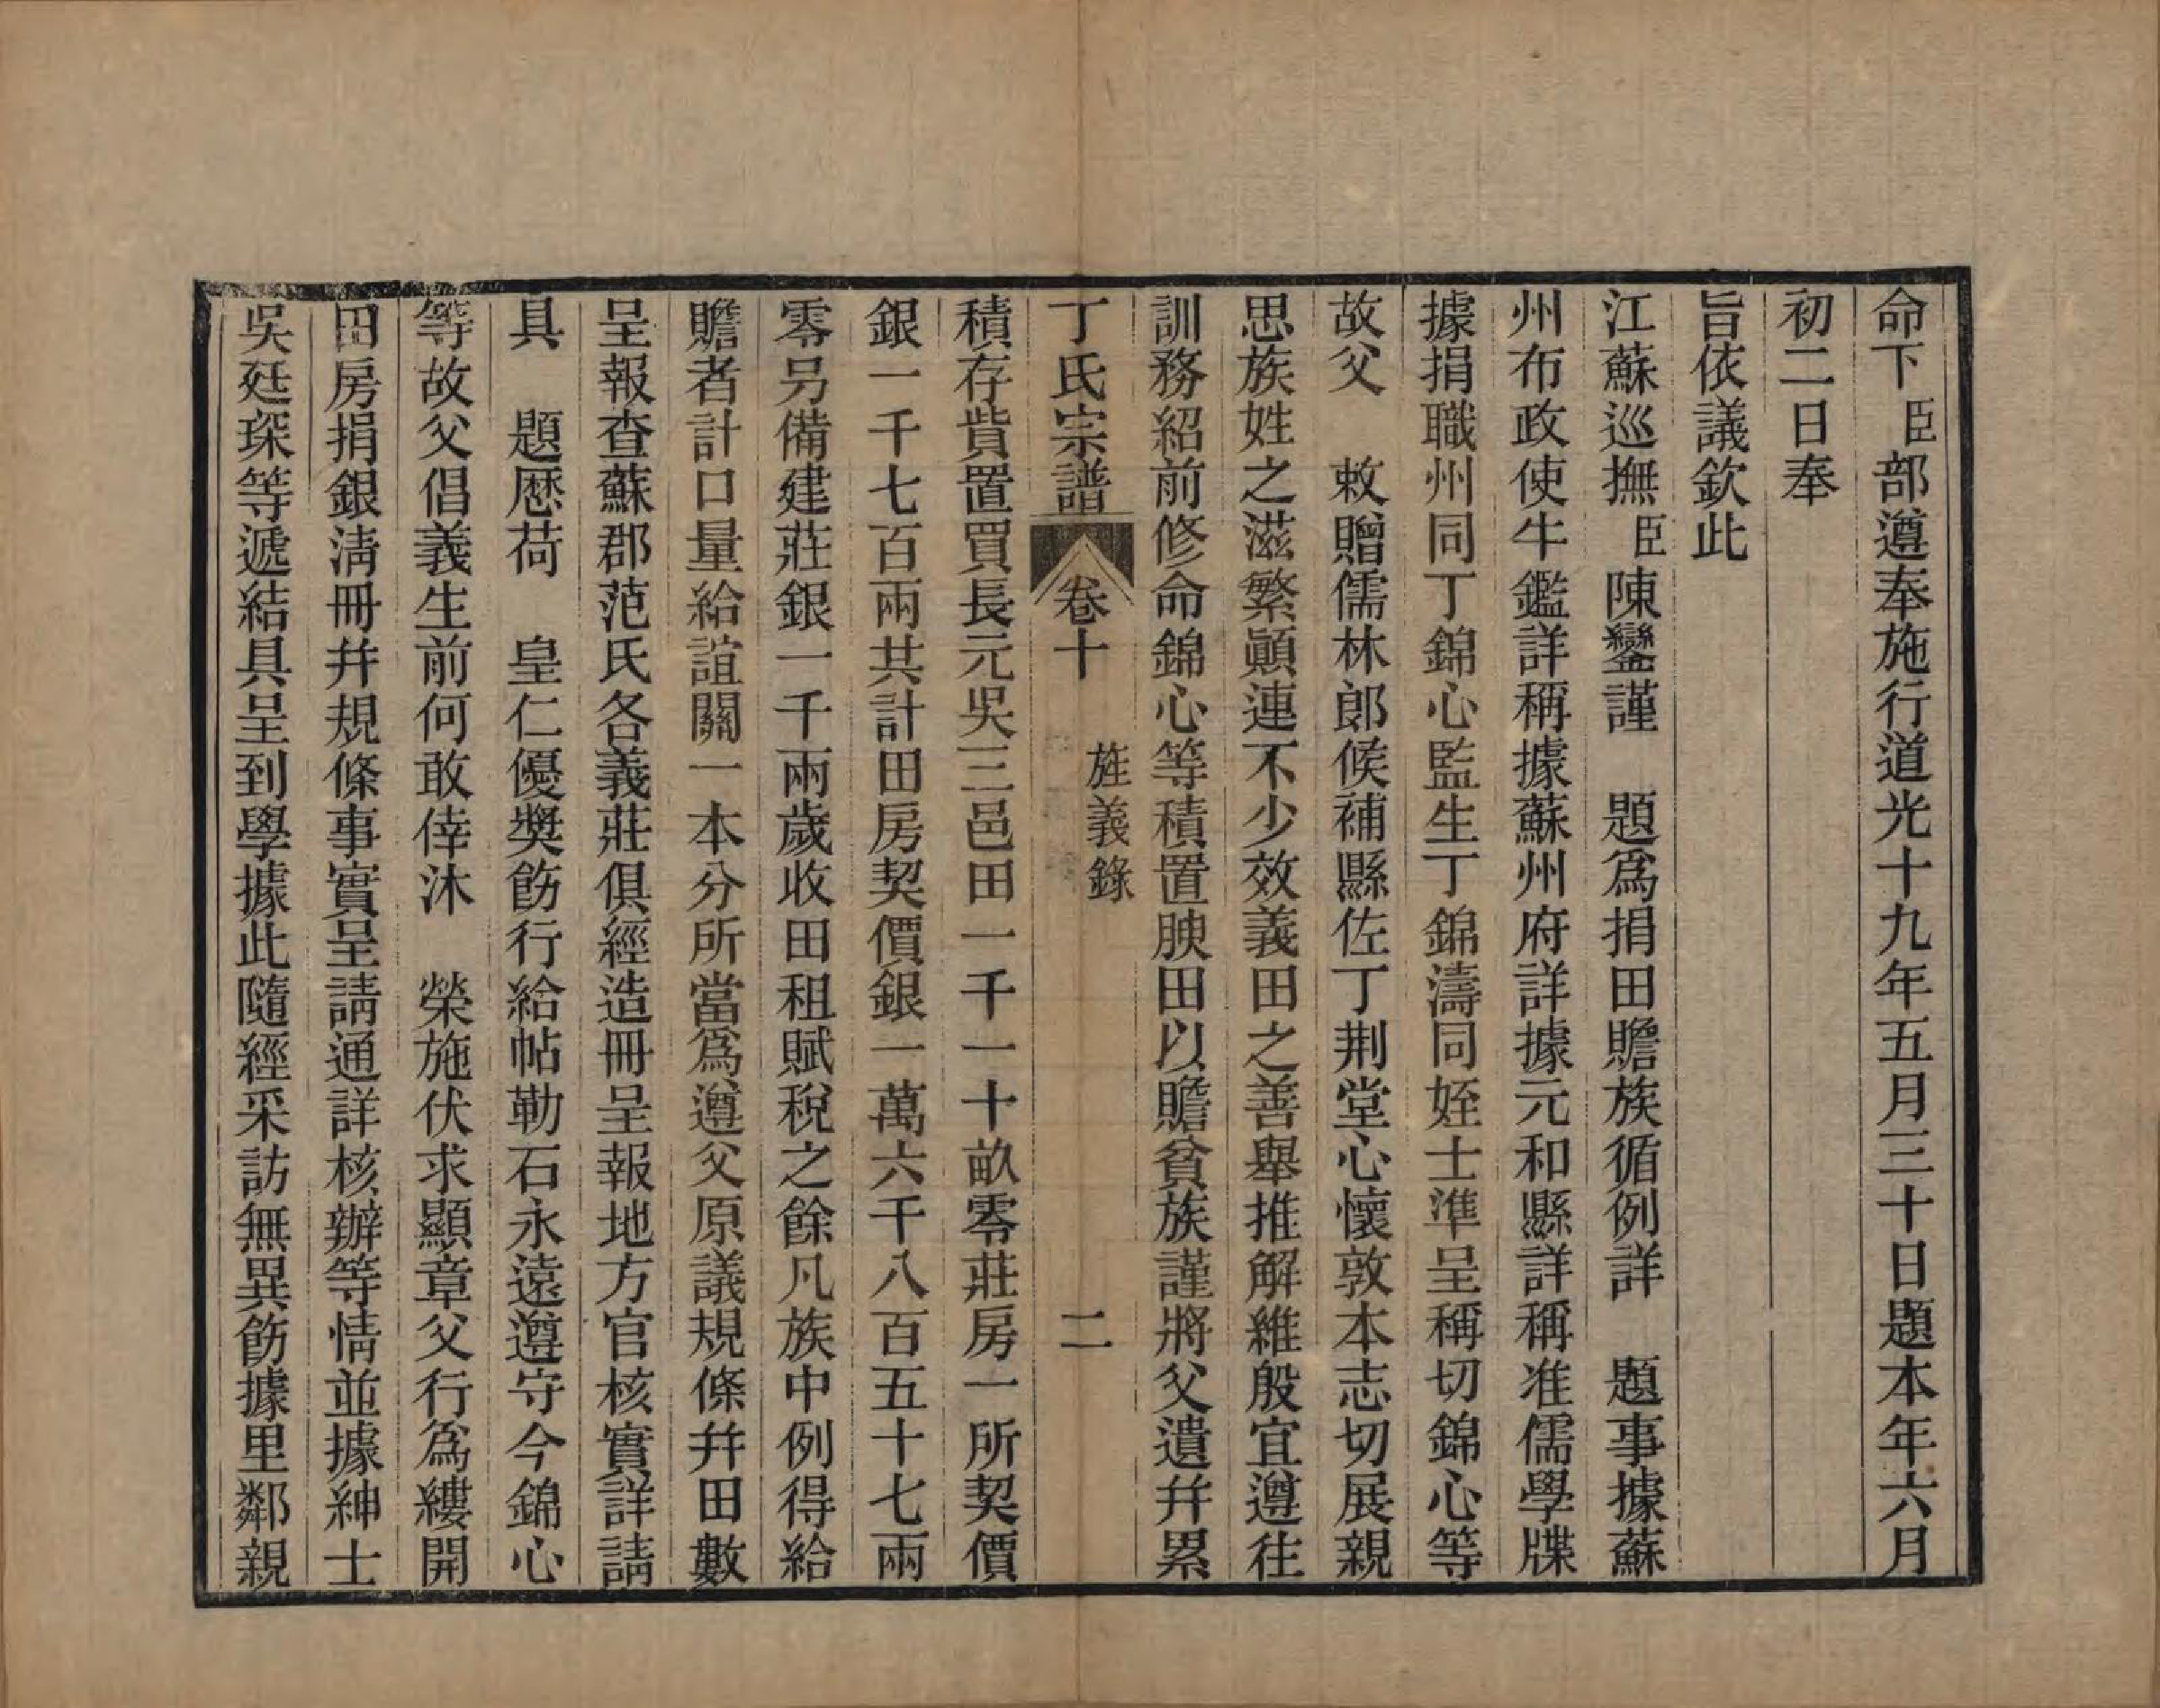 命下臣部遵奉施行道光十九年五月三十日題本年六月
初二日奉
旨依議欽此
江蘇巡撫臣陳鑾謹　題爲捐田贍族循例詳　題事據蘇
州布政使牛鑑詳稱據蘇州府詳據元和縣詳稱准儒學牒
據捐職州同丁錦心監生丁錦濤同姪士準呈稱切錦心等
故父　敕贈儒林郎候補縣佐丁荆堂心懷敦本志切展親
思族姓之滋繁顚連不少效義田之善舉推解維殷宜遵往
訓務紹前修命錦心等積置腴田以贍貧族謹將父遺幷累
丁氏宗譜　卷十　旌義錄　二
積存貲置買長元吳三邑田一千一十畝零莊房一所契價
銀一千七百兩共計田房契價銀一萬六千八百五十七兩
零另備建莊銀一千兩歲收田租賦稅之餘凡族中例得給
贍者計口量給誼關一本分所當爲遵父原議規條幷田數
呈報查蘇郡范氏各義莊俱經造冊呈報地方官核實詳請
具　題歷荷　皇仁優獎飭行給帖勒石永遠遵守今錦心
等故父倡義生前何敢倖沐　榮施伏求顯章父行爲縷開
田房捐銀淸冊幷規條事實呈請通詳核辦等情並據紳士
吳廷琛等遞結具呈到學據此隨經采訪無異飭據里鄰親